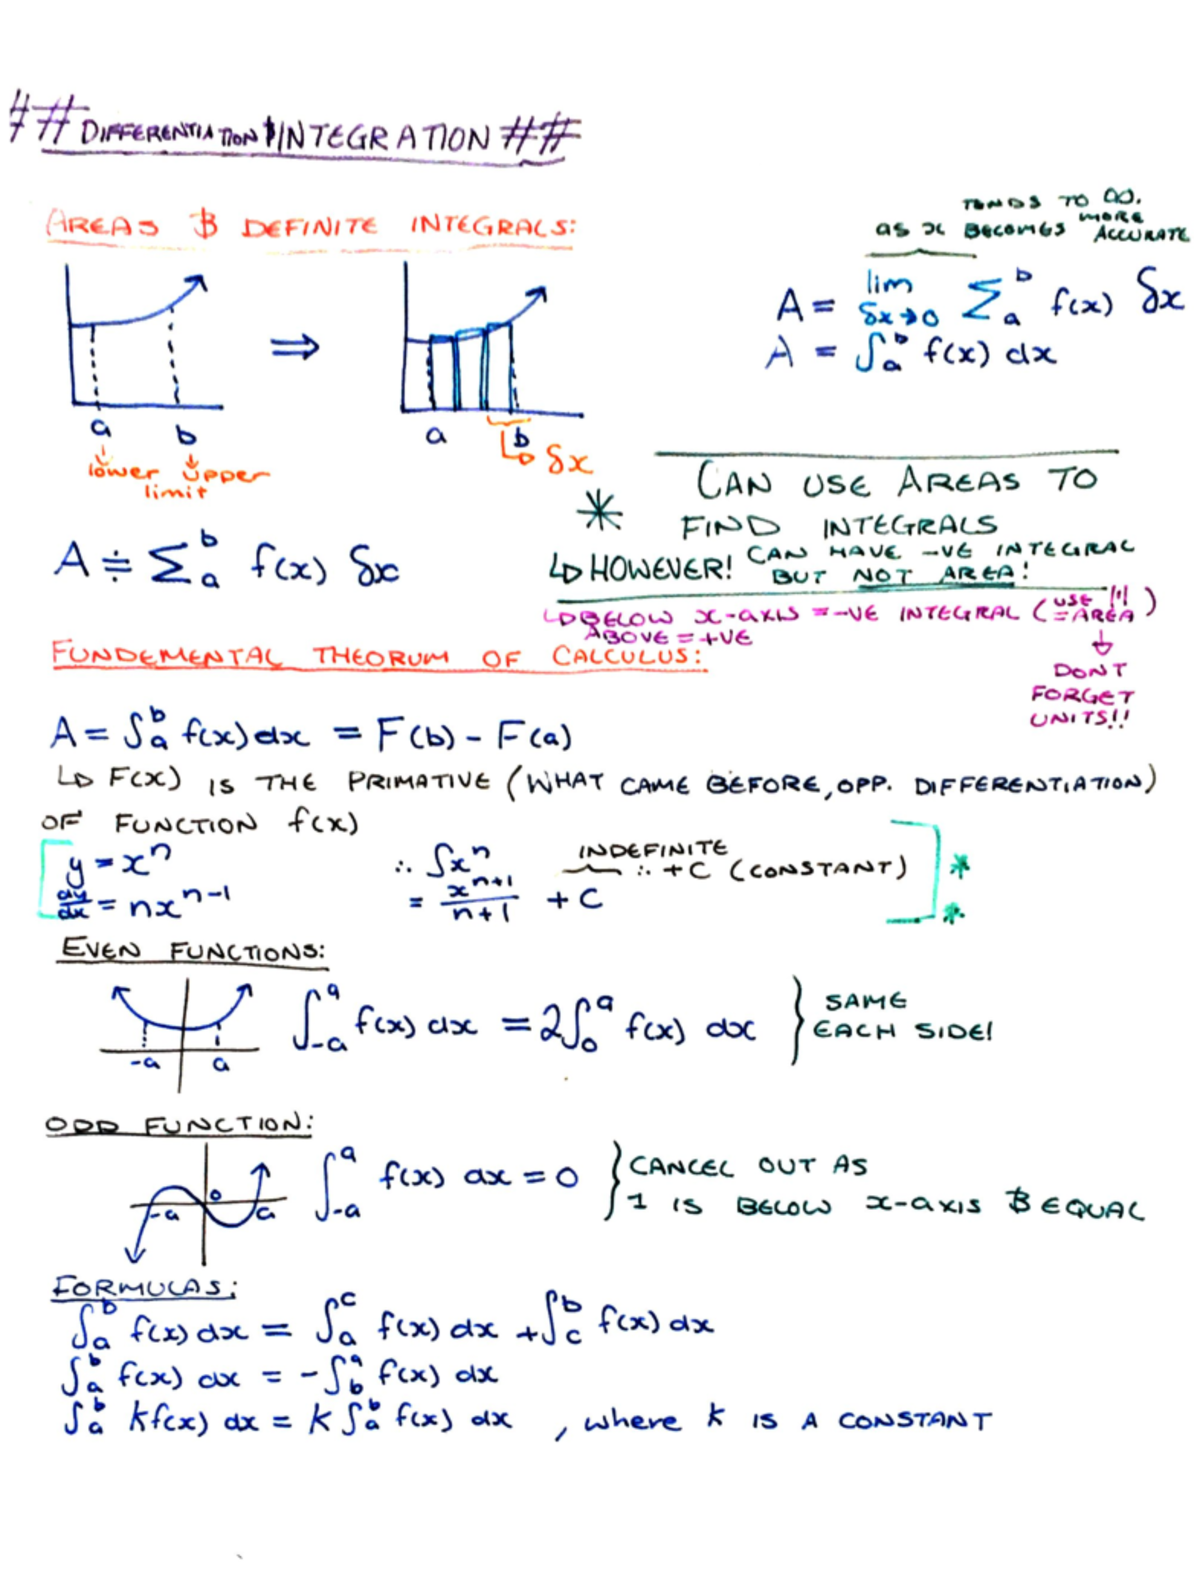 ## DIFFERENTIATION & INTEGRATION ##
AREAS & DEFINITE INTEGRALS:
TENDS TO ∞.
AS x BECOMES MORE ACCURATE
A = lim δx→0 Σ_a^b f(x) δx
A = ∫_a^b f(x) dx
a b
lower upper
limit
a b
δx
A ≑ Σ_a^b f(x) δx
* CAN USE AREAS TO
FIND INTEGRALS
↳ HOWEVER! CAN HAVE -VE INTEGRAL
BUT NOT AREA!
↳ BELOW x-axis = -VE INTEGRAL (USE |!| = AREA)
ABOVE = +VE
DONT
FORGET
UNITS!!
FUNDEMENTAL THEORUM OF CALCULUS:
A = ∫_a^b f(x) dx = F(b) - F(a)
↳ F(x) IS THE PRIMATIVE (WHAT CAME BEFORE, OPP. DIFFERENTIATION)
OF FUNCTION f(x)
y = x^n ∴ ∫x^n INDEFINITE ∴ +C (CONSTANT) *
dy/dx = nx^(n-1) = x^(n+1)/(n+1) + C *
EVEN FUNCTIONS:
-a a
∫_-a^a f(x) dx = 2∫_0^a f(x) dx } SAME
EACH SIDE!
ODD FUNCTION:
-a 0 a
∫_-a^a f(x) dx = 0 } CANCEL OUT AS
1 IS BELOW x-axis & EQUAL
FORMULAS:
∫_a^b f(x) dx = ∫_a^c f(x) dx + ∫_c^b f(x) dx
∫_a^b f(x) dx = -∫_b^a f(x) dx
∫_a^b kf(x) dx = k∫_a^b f(x) dx , where k IS A CONSTANT